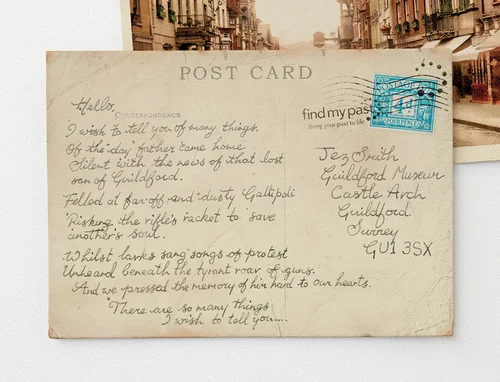 POST CARD
CORRESPONDENCE
Hello,
I wish to tell you of many things.
Of the day father came home
Silent with the news of that lost
son of Guildford.
Felled at far-off and dusty Gallipoli
Risking the rifle's racket to save
another's soul.
Whilst larks sang songs of protest
Unheard beneath the tyrant roar of guns.
And we pressed the memory of him hard to our hearts.
There are so many things
I wish to tell you....
find my past
Bring your past to life
POSTAGE
4d
FOUR PENCE
Jez Smith
Guildford Museum
Castle Arch
Guildford
Surrey
GU1 3SX